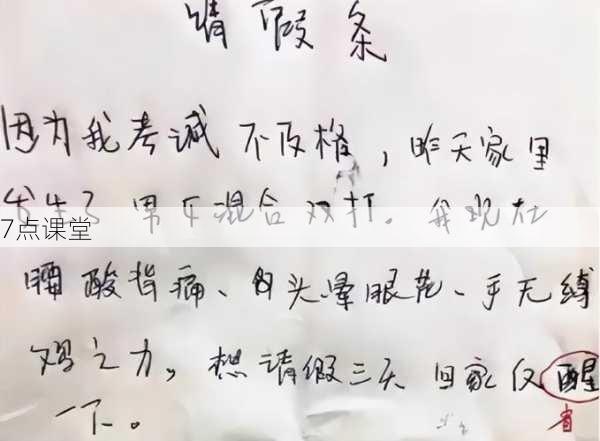 请假条
因为我考诚不及格，昨天家里
发生了男女混合双打。我现在
7点课堂
腰酸背痛、头晕眼花、手无缚
鸡之力，想请假三天回家仅醒
省
一下。